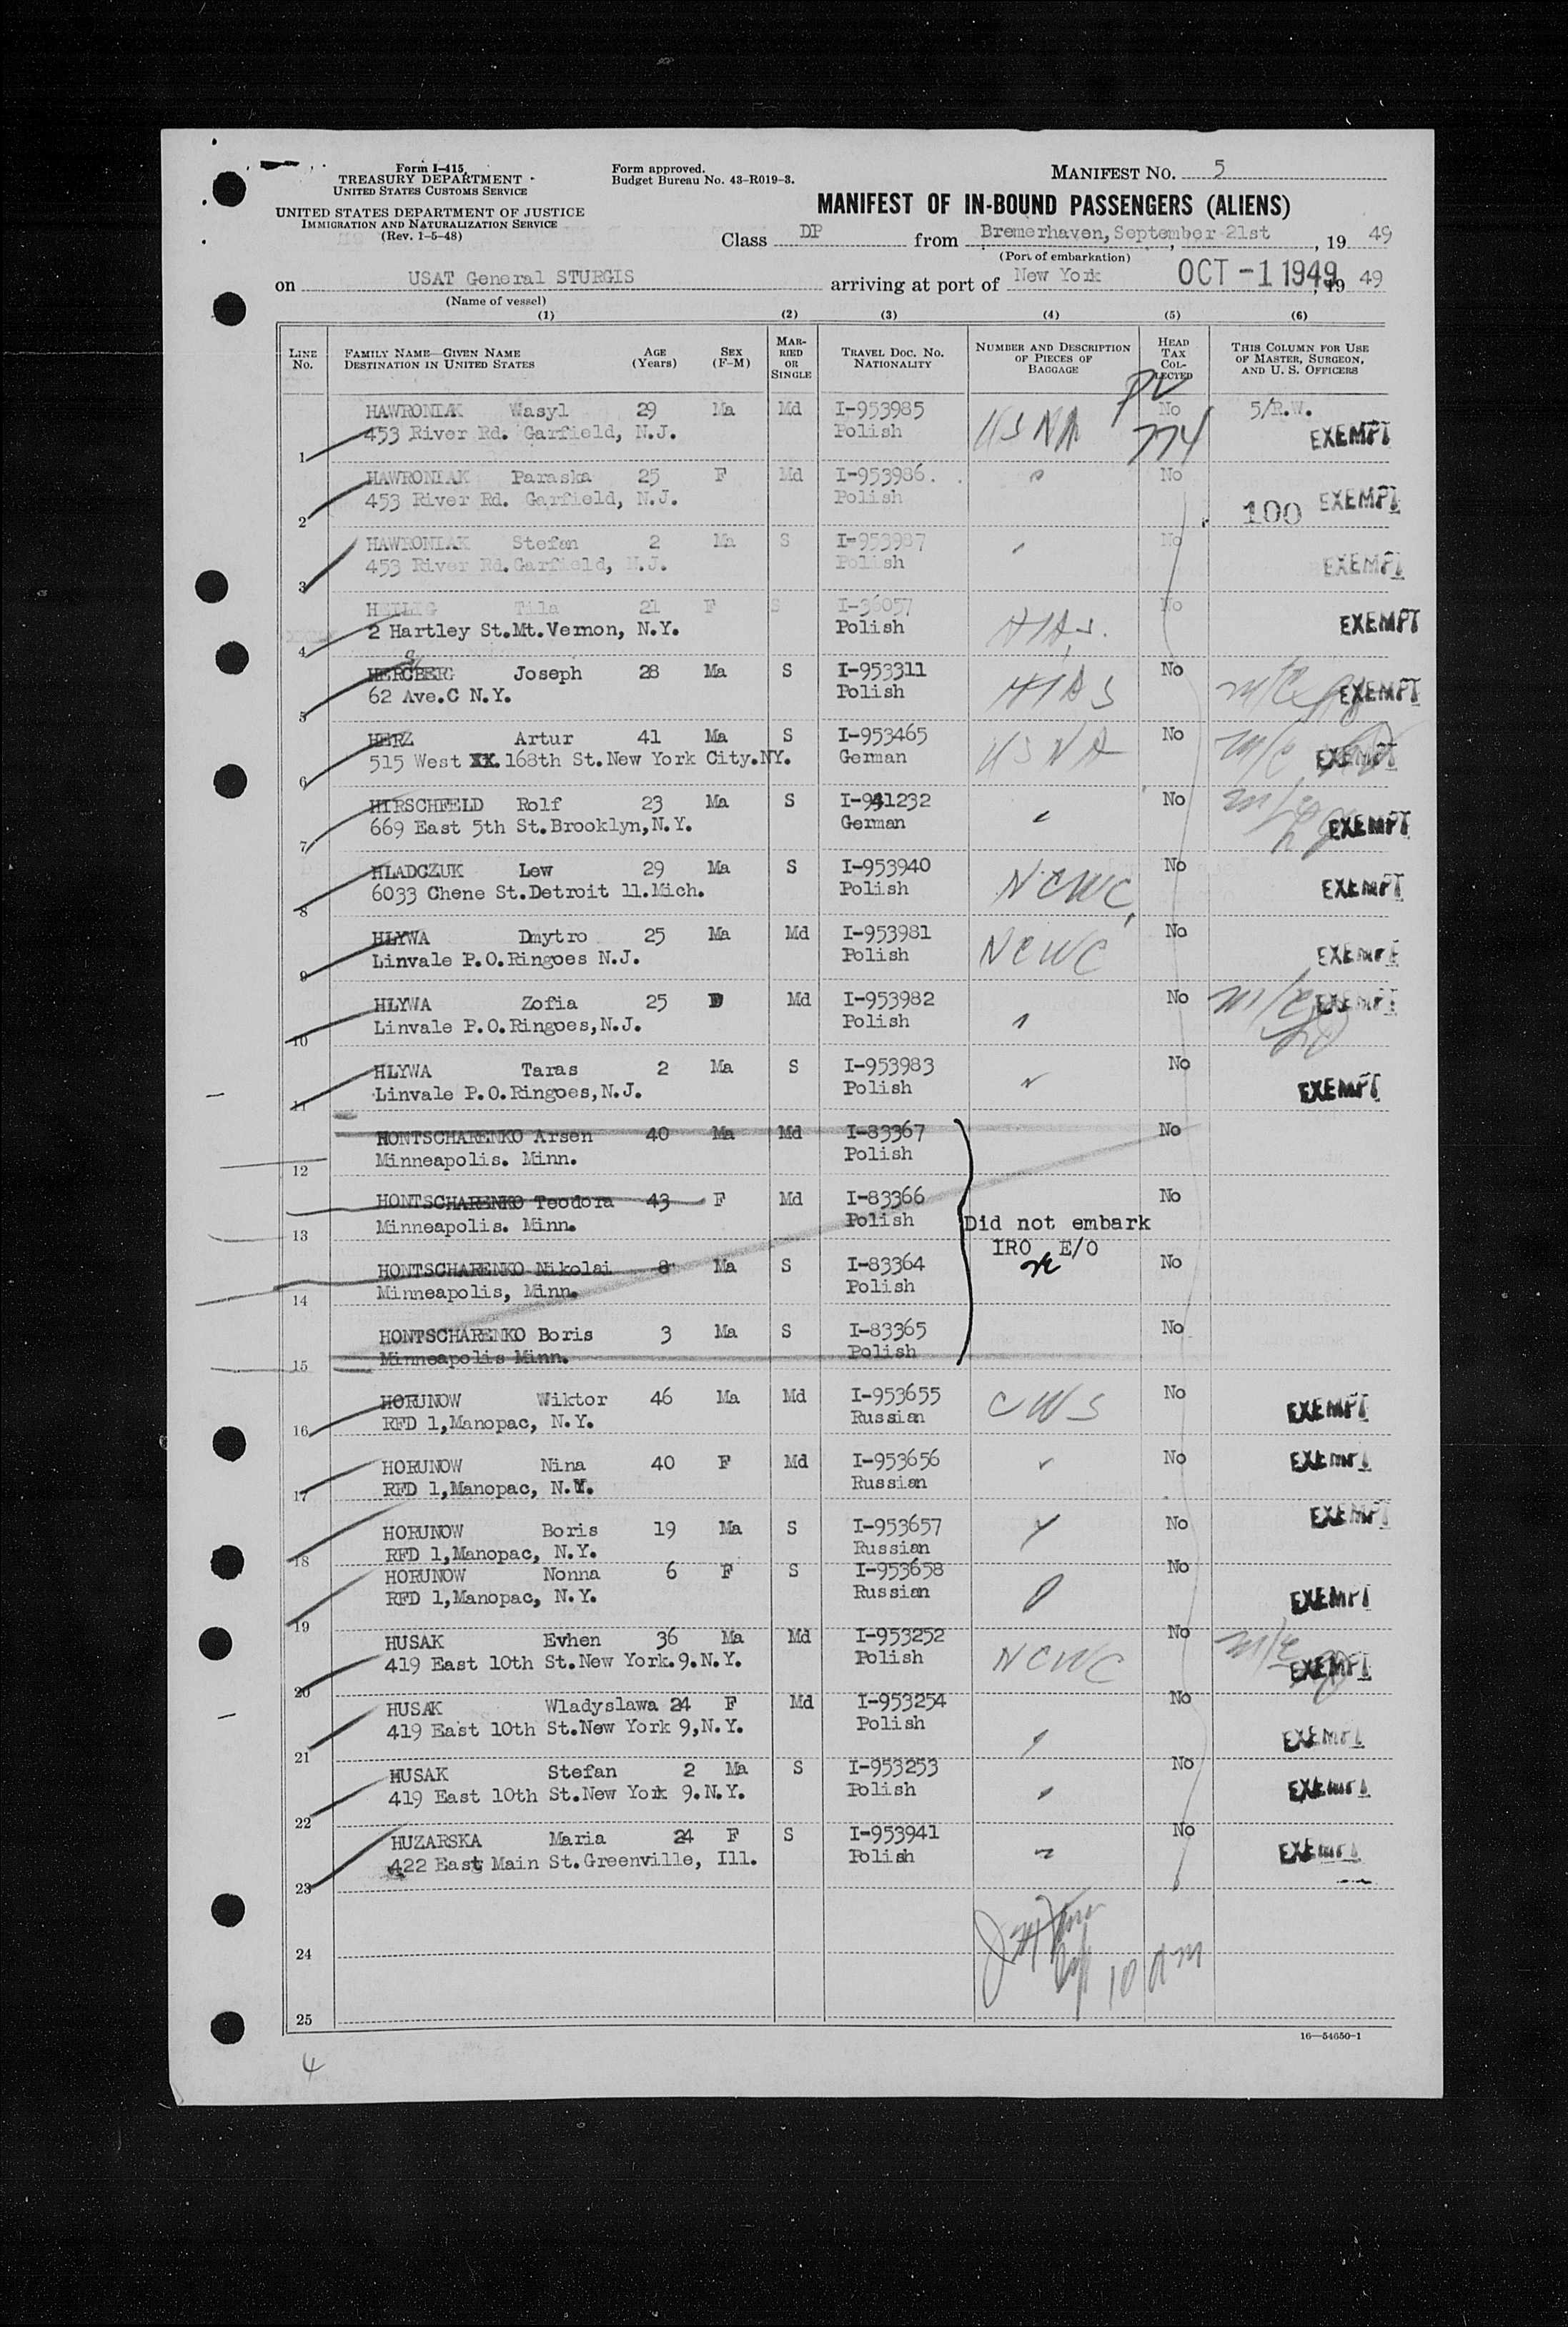 Form I-415
TREASURY DEPARTMENT
UNITED STATES CUSTOMS SERVICE
UNITED STATES DEPARTMENT OF JUSTICE
IMMIGRATION AND NATURALIZATION SERVICE
(Rev. 1-5-48)
Form approved.
Budget Bureau No. 43-R019-3.
MANIFEST NO. 5
MANIFEST OF IN-BOUND PASSENGERS (ALIENS)
Class DP from Bremerhaven, September 21st, 19 49
(Port of embarkation)
on USAT General STURGIS arriving at port of New York OCT -1 1949, 19 49
(Name of vessel)
(1) (2) (3) (4) (5) (6)
LINE NO. FAMILY NAME—GIVEN NAME DESTINATION IN UNITED STATES AGE (Years) SEX (F-M) MARRIED OR SINGLE TRAVEL DOC. NO. NATIONALITY NUMBER AND DESCRIPTION OF PIECES OF BAGGAGE HEAD TAX COLLECTED THIS COLUMN FOR USE OF MASTER, SURGEON, AND U. S. OFFICERS
HAWRONIAK Wasyl 29 Ma Md I-953985 USNA No 5/R.W.
1 453 River Rd. Garfield, N.J. Polish 774 EXEMPT
HAWRONIAK Paraska 25 F Md I-953986. No
2 453 River Rd. Garfield, N.J. Polish 100 EXEMPT
HAWRONIAK Stefan 2 Ma S I-953987 No
3 453 River Rd. Garfield, N.J. Polish EXEMPT
HEILIG Tila 21 F S I-36057 No
4 2 Hartley St.Mt.Vernon, N.Y. Polish HIAS. EXEMPT
HERCBERG Joseph 28 Ma S I-953311 No
5 62 Ave.C N.Y. Polish HIAS EXEMPT
HERZ Artur 41 Ma S I-953465 No
6 515 West XX.168th St.New York City.NY. German USNA EXEMPT
HIRSCHFELD Rolf 23 Ma S I-941232 No
7 669 East 5th St.Brooklyn,N.Y. German EXEMPT
HLADCZUK Lew 29 Ma S I-953940 No
8 6033 Chene St.Detroit 11.Mich. Polish NCWC, EXEMPT
HLYWA Dmytro 25 Ma Md I-953981 No
9 Linvale P.O.Ringoes N.J. Polish NCWC EXEMPT
HLYWA Zofia 25 Md I-953982 No EXEMPT
10 Linvale P.O.Ringoes,N.J. Polish
HLYWA Taras 2 Ma S I-953983 No
11 Linvale P.O.Ringoes,N.J. Polish EXEMPT
HONTSCHARENKO Arsen 40 Ma Md I-83367 No
12 Minneapolis. Minn. Polish
HONTSCHARENKO Teodora 43 F Md I-83366 No
13 Minneapolis. Minn. Polish Did not embark
IRO E/O
HONTSCHARENKO Nikolai 8 Ma S I-83364 No
14 Minneapolis, Minn. Polish
HONTSCHARENKO Boris 3 Ma S I-83365 No
15 Minneapolis Minn. Polish
HORUNOW Wiktor 46 Ma Md I-953655 CWS No EXEMPT
16 RFD 1,Manopac, N.Y. Russian
HORUNOW Nina 40 F Md I-953656 No EXEMPT
17 RFD 1,Manopac, N.Y. Russian
HORUNOW Boris 19 Ma S I-953657 No EXEMPT
18 RFD 1,Manopac, N.Y. Russian
HORUNOW Nonna 6 F S I-953658 No
19 RFD 1,Manopac, N.Y. Russian EXEMPT
HUSAK Evhen 36 Ma Md I-953252 No
20 419 East 10th St.New York.9.N.Y. Polish NCWC EXEMPT
HUSAK Wladyslawa 24 F Md I-953254 No
21 419 East 10th St.New York 9,N.Y. Polish EXEMPT
HUSAK Stefan 2 Ma S I-953253 No
22 419 East 10th St.New York 9.N.Y. Polish EXEMPT
HUZARSKA Maria 24 F S I-953941 No
23 422 East Main St.Greenville, Ill. Polish EXEMPT
24
10 AM
25
16—54650-1
4